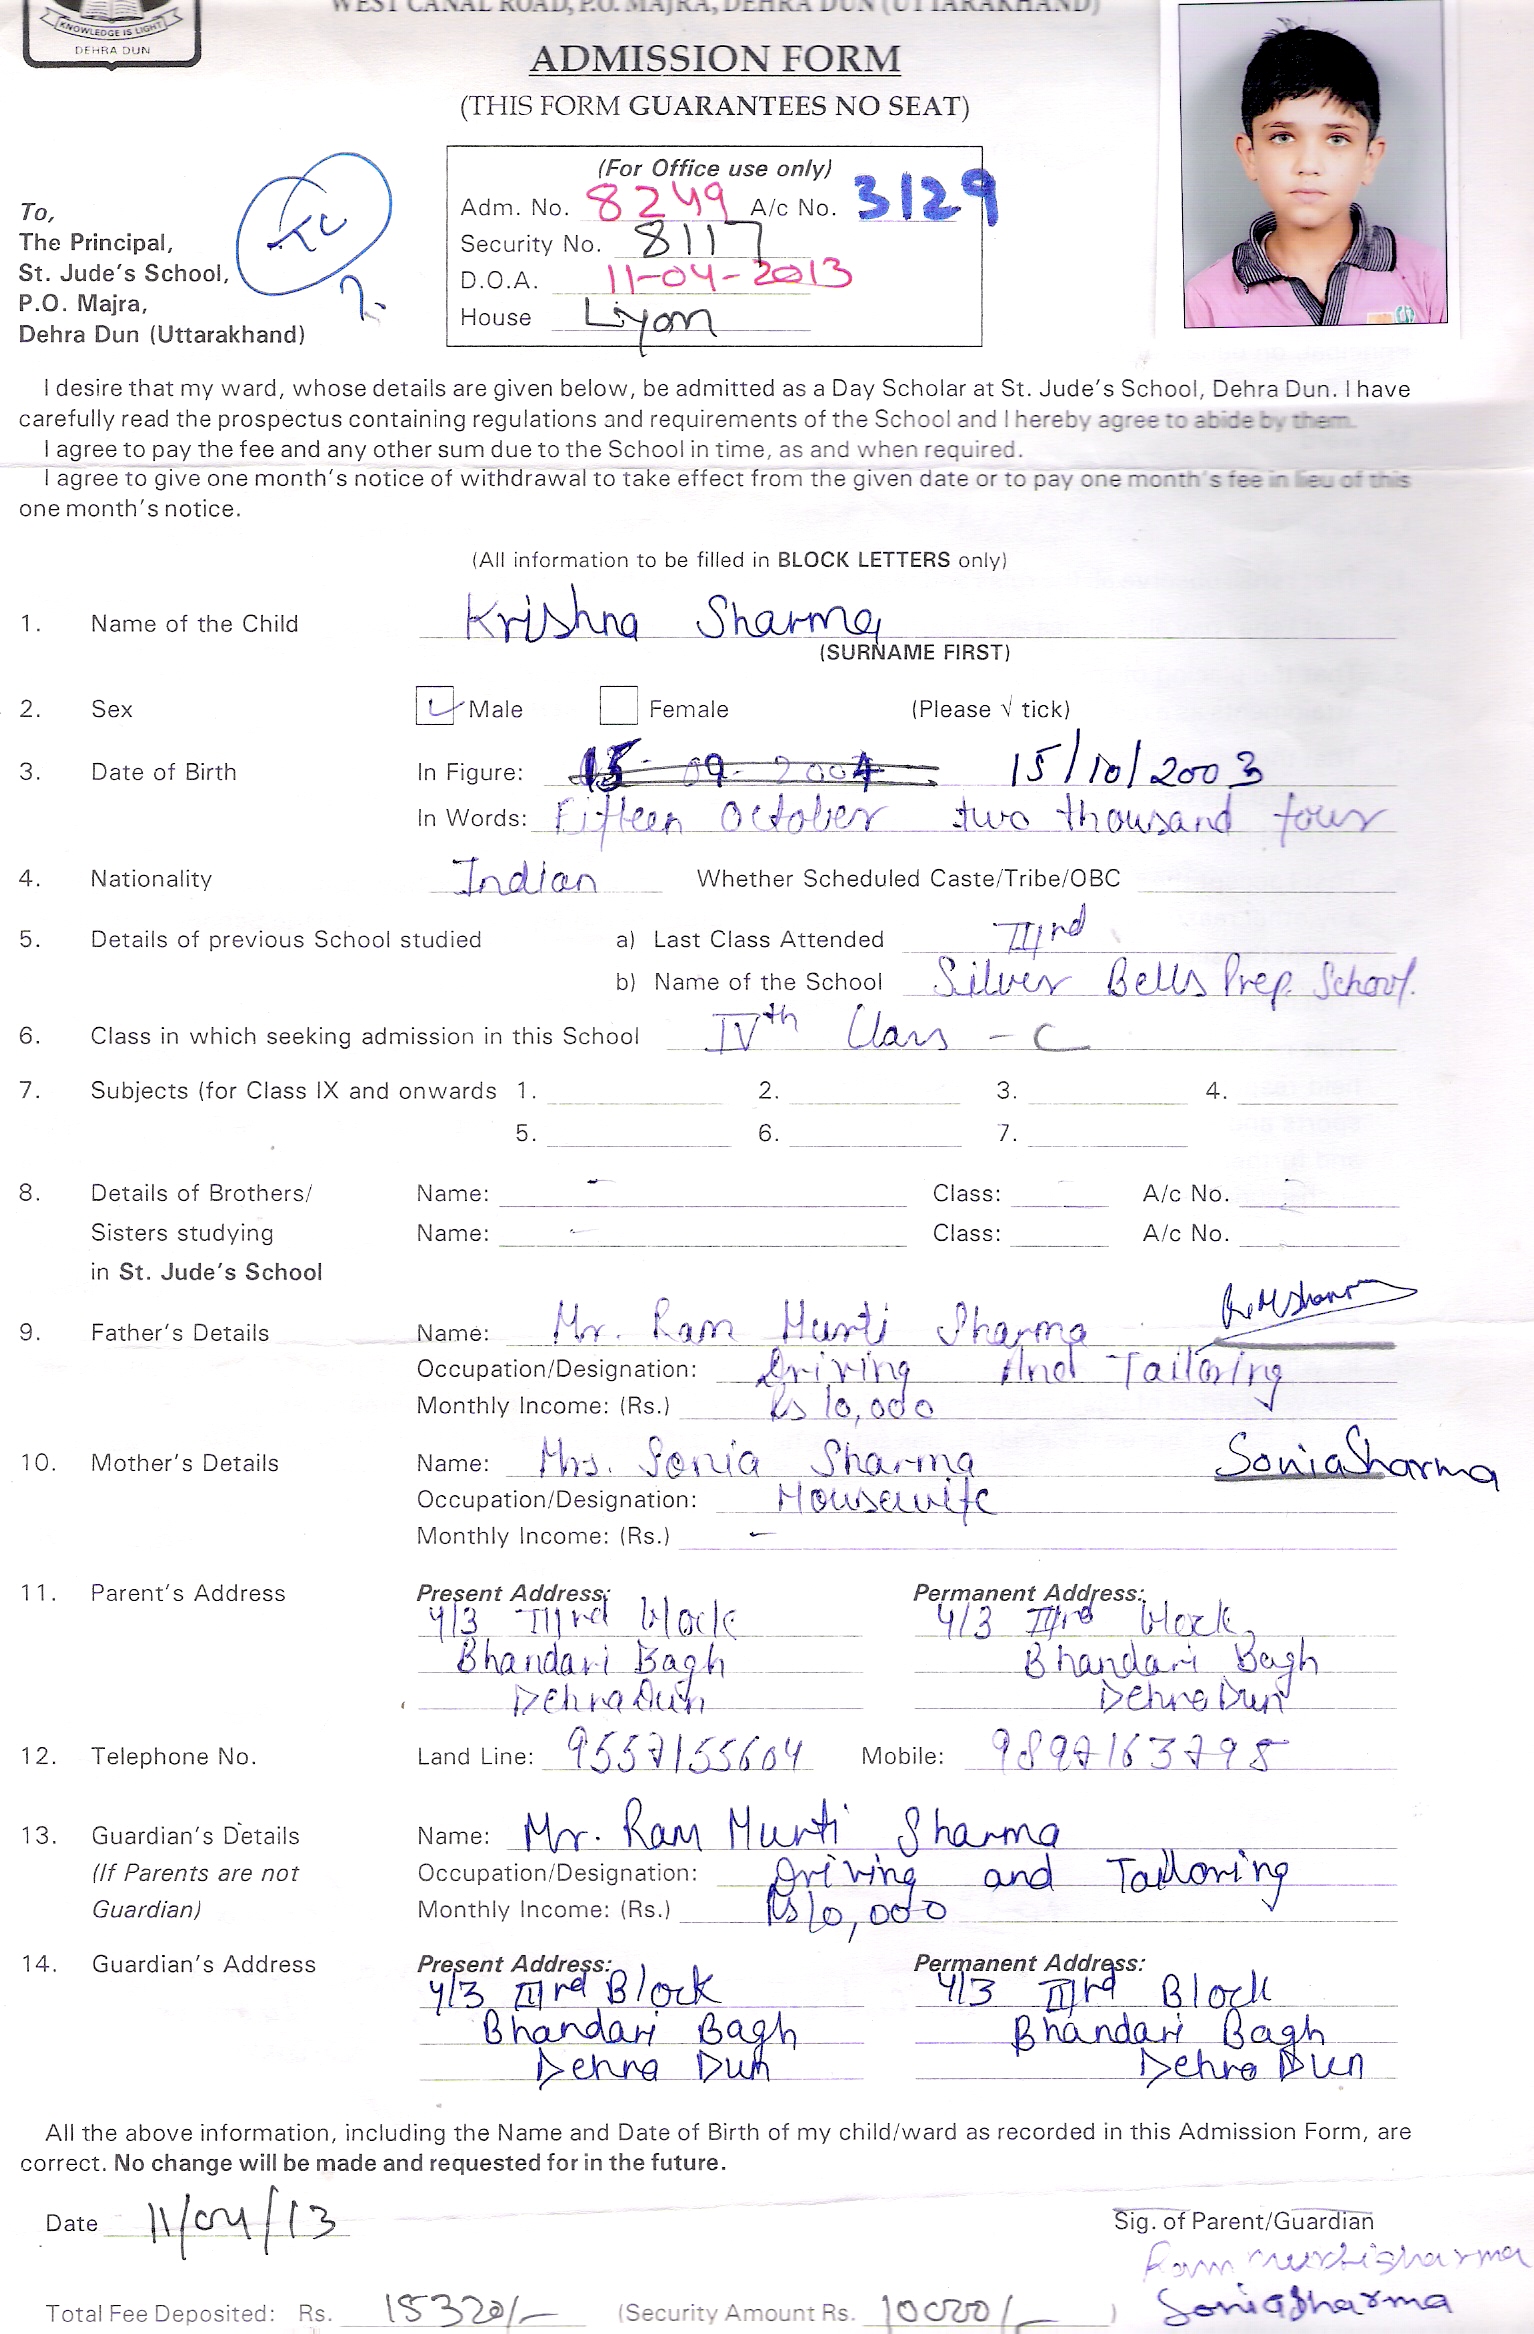 WEST CANAL ROAD, P.O. MAJRA, DEHRA DUN (UTTARAKHAND)
KNOWLEDGE IS LIGHT
DEHRA DUN
ADMISSION FORM
(THIS FORM GUARANTEES NO SEAT)
(For Office use only)
Adm. No. 8249 A/c No. 3129
Security No. 8117
D.O.A. 11-04-2013
House Lyon
TC
?
To,
The Principal,
St. Jude's School,
P.O. Majra,
Dehra Dun (Uttarakhand)
I desire that my ward, whose details are given below, be admitted as a Day Scholar at St. Jude's School, Dehra Dun. I have
carefully read the prospectus containing regulations and requirements of the School and I hereby agree to abide by them.
I agree to pay the fee and any other sum due to the School in time, as and when required.
I agree to give one month's notice of withdrawal to take effect from the given date or to pay one month's fee in lieu of this
one month's notice.
(All information to be filled in BLOCK LETTERS only)
1. Name of the Child Krishna Sharma
(SURNAME FIRST)
2. Sex Male Female (Please √ tick)
3. Date of Birth In Figure: 15-09-2004 15/10/2003
In Words: Fifteen October two thousand four
4. Nationality Indian Whether Scheduled Caste/Tribe/OBC
5. Details of previous School studied a) Last Class Attended IIIrd
b) Name of the School Silver Bells Prep. School.
6. Class in which seeking admission in this School IVth Class - C
7. Subjects (for Class IX and onwards 1. 2. 3. 4.
5. 6. 7.
8. Details of Brothers/ Name: - Class: A/c No.
Sisters studying Name: - Class: A/c No.
in St. Jude's School
9. Father's Details Name: Mr. Ram Murti Sharma RMSharma
Occupation/Designation: Driving And Tailoring
Monthly Income: (Rs.) Rs 10,000
10. Mother's Details Name: Mrs. Sonia Sharma Sonia Sharma
Occupation/Designation: Housewife
Monthly Income: (Rs.) -
11. Parent's Address Present Address: Permanent Address:
4/3 IIIrd block 4/3 IIIrd block,
Bhandari Bagh Bhandari Bagh
Dehra Dun Dehra Dun
12. Telephone No. Land Line: 9557155604 Mobile: 9897163798
13. Guardian's Details Name: Mr. Ram Murti Sharma
(If Parents are not Occupation/Designation: Driving and Tailoring
Guardian) Monthly Income: (Rs.) Rs 10,000
14. Guardian's Address Present Address: Permanent Address:
4/3 IIIrd Block 4/3 IIIrd Block
Bhandari Bagh Bhandari Bagh
Dehra Dun Dehra Dun
All the above information, including the Name and Date of Birth of my child/ward as recorded in this Admission Form, are
correct. No change will be made and requested for in the future.
Date 11/04/13 Sig. of Parent/Guardian
Ram murti sharma
Total Fee Deposited: Rs. 15320/- (Security Amount Rs. 10000/- ) Sonia Sharma